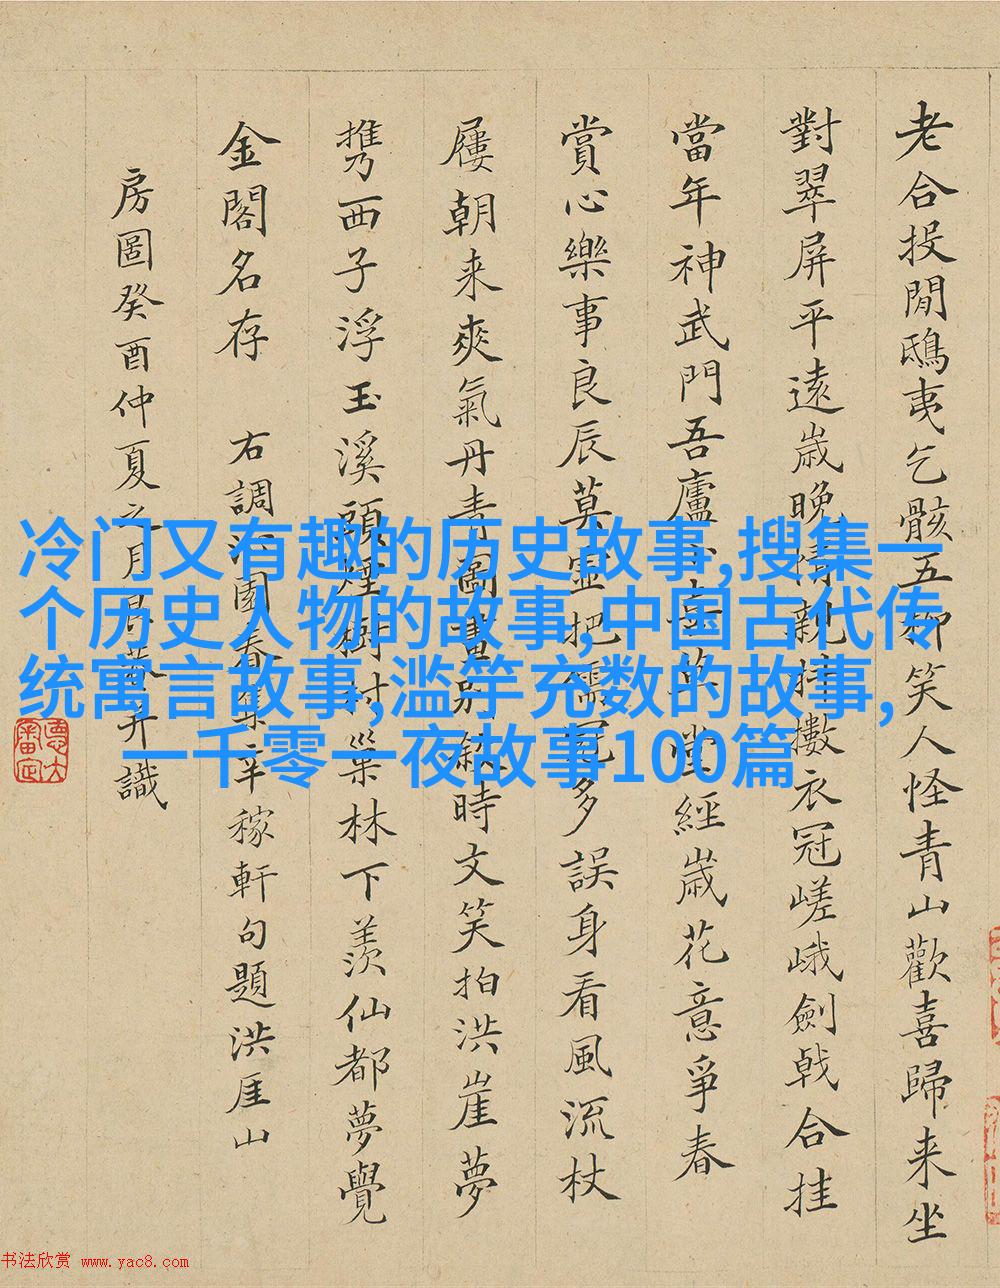 老合投閒鴟夷乞骸五柳笑人怪青山歡喜歸来坐
對翠屏平遠歲晚情親衣冠嵯峨劍戟合挂
當年神武門吾廬堂經歲花意爭春
賞心樂事良辰莫虛把儒冠多誤身看風流杖
屨朝来爽氣丹青圖畫別時文笑拍洪崖夢
携西子浮玉溪頭煙樹村巢林下羨仙都夢覺
金閣名存 右調沁園春集辛稼軒句題洪厓山
房圖癸酉仲夏之月升識
冷门又有趣的历史故事,搜集一
个历史人物的故事,中国古代传
统寓言故事,滥竽充数的故事,
一千零一夜故事100篇
书法欣赏 www.yac8.com